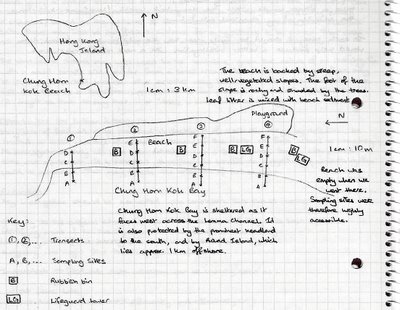 N
Hong Kong
Island
Chung Hom
Kok Beach
1cm = 3 km
The beach is backed by steep,
well-vegetated slopes. The foot of the
slope is rocky and shaded by the trees.
Leaf litter is mixed with beach sediment.
N
1cm : 10m
Playground
① ② ③ ④
Beach
D
C
B
A
E
D
C
B
A
F
E
D
C
B
A
F
E
D
C
B
A
B B B LG B LG
Chung Hom Kok Bay
Beach was
empty when we
went there.
Sampling sites were
therefore widely
accessible.
Chung Hom Kok Bay is sheltered as it
faces west across the Lamma Channel. It
is also protected by the prominent headland
to the south, and by Round Island, which
lies approx. 1 km offshore.
Key:
①, ②, ... Transects
A, B, ... Sampling Sites
B Rubbish bin
LG Lifeguard tower